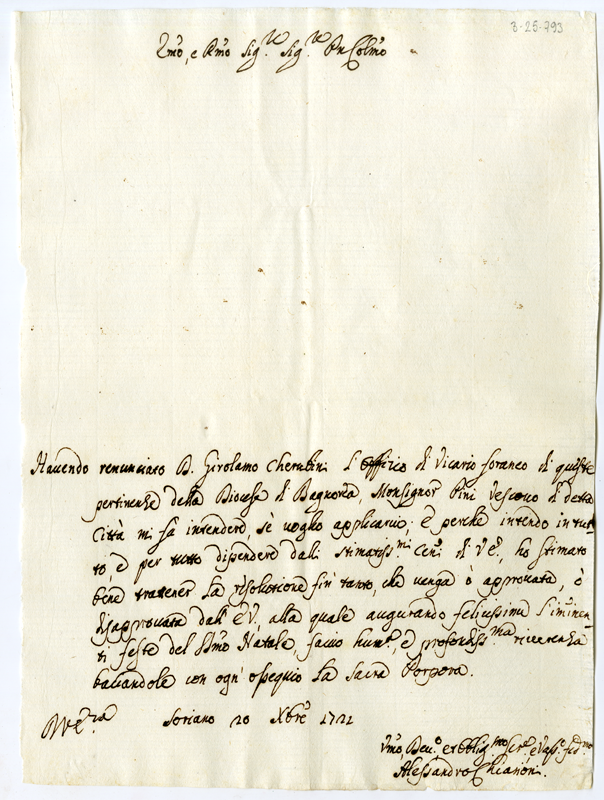 3-25-793
Emõ, e Rmõ Sig.re Sig.re Pn Colmõ
Havendo renunciato D. Girolamo Cherubini l'Offizio di Vicario foraneo di queste
pertinenze della Diocese di Bagnorea, Monsignor Pini Vescovo di detta
Città mi fa intendere, se voglio applicarvi; e perche intendo in tut-
to, e per tutto dipendere dalli stimatiss.mi Cenni di V.E., ho stimato
bene trattener la risolutione fin tanto, che venga ò approvata, ò
disapprovata dall'E.V., alla quale augurando felicissime l'imminen-
ti feste del SSmo Natale, faccio hum.e, e profondiss.ma riverenza
baciandole con ogni ossequio la Sacra Porpora.
Soriano 20 Xbre 1721
Vmõ, Dev.o, et Oblig.mo Ser.e e Vass.o fid.mo
Alessandro Chianoni.